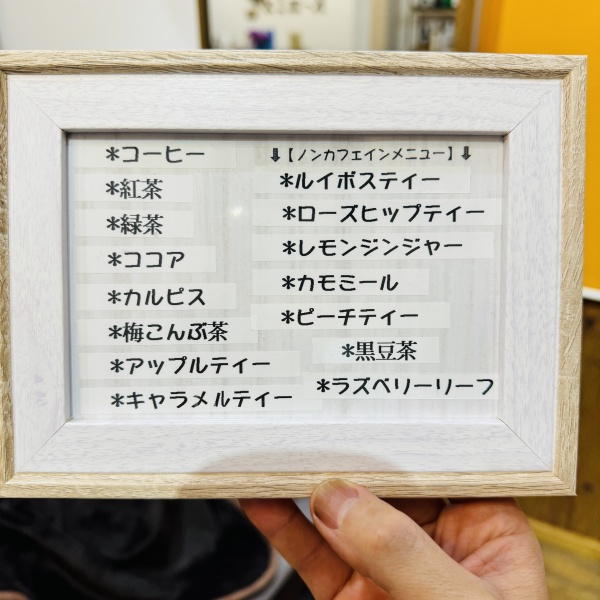 *コーヒー
*紅茶
*緑茶
*ココア
*カルピス
*梅こんぶ茶
*アップルティー
*キャラメルティー
⬇【ノンカフェインメニュー】⬇
*ルイボスティー
*ローズヒップティー
*レモンジンジャー
*カモミール
*ピーチティー
*黒豆茶
*ラズベリーリーフ